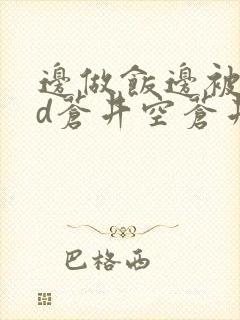 邊做飯邊被
d蒼井空蒼井
巴格西